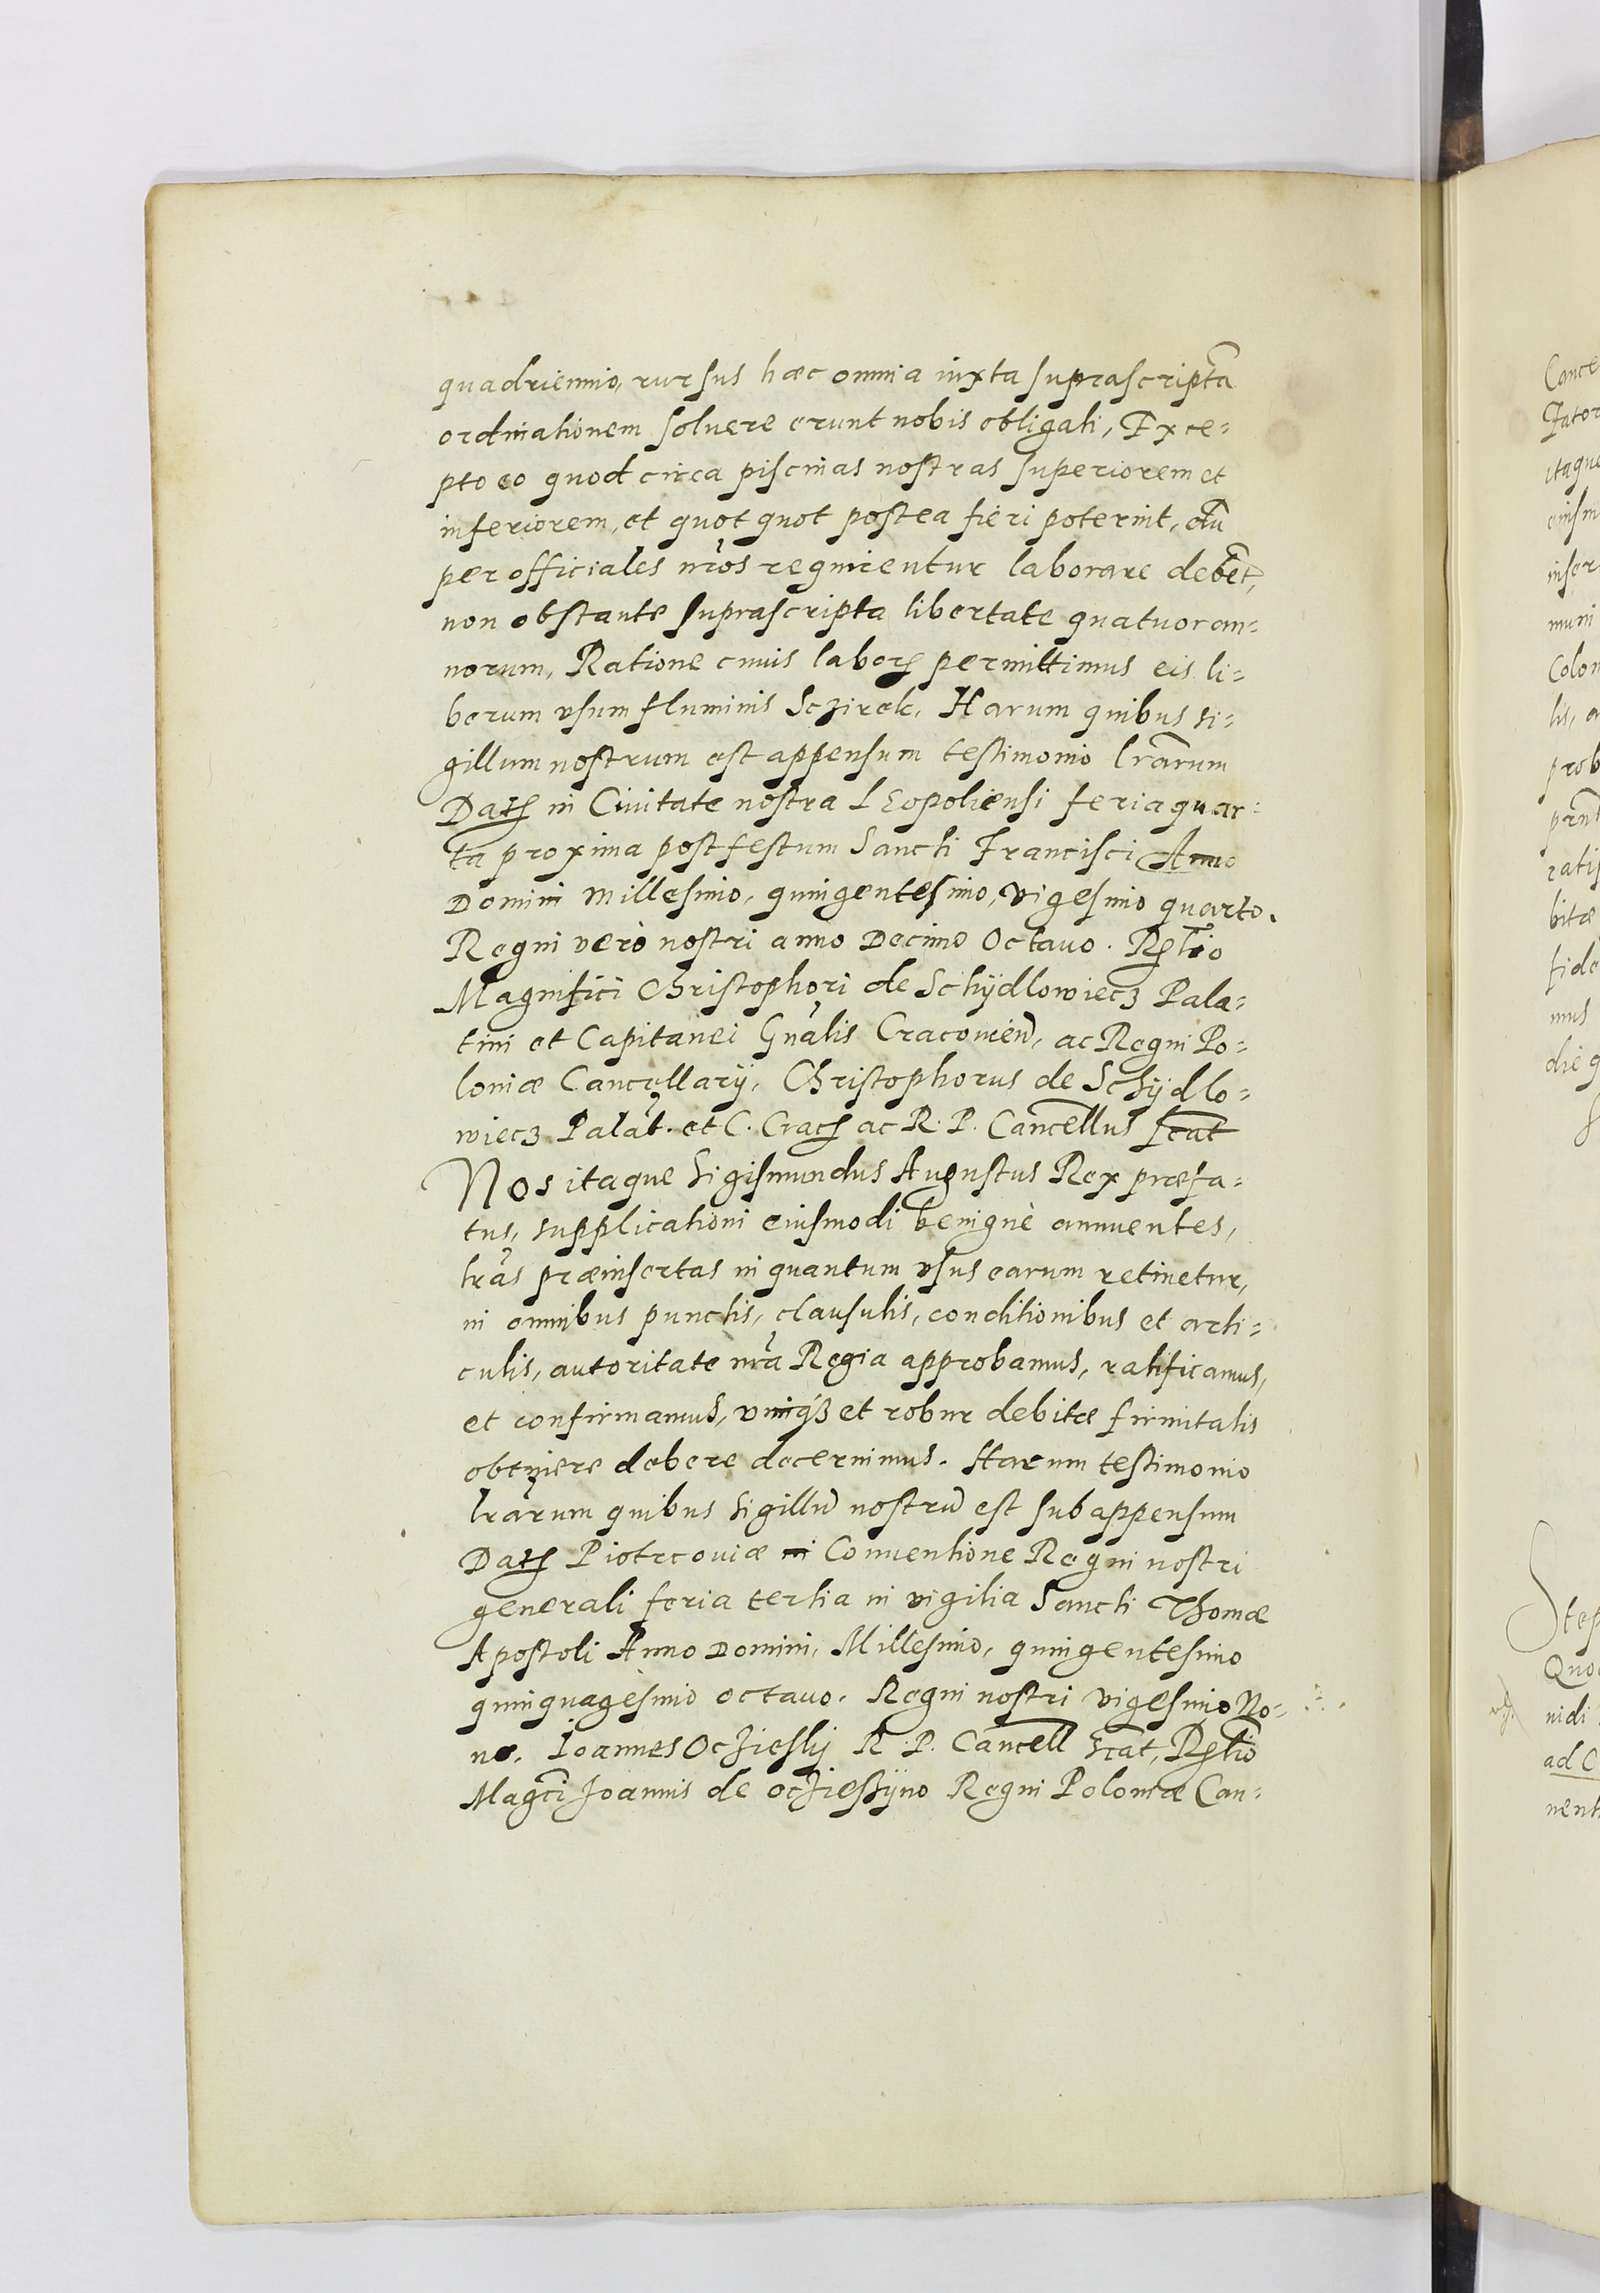 quadriennio, rursus haec omnia iuxta suprascriptā
ordinationem soluere erunt nobis obligati, Exce=
pto eo quod circa piscinas nostras superiorem et
inferiorem, et quot quot postea fieri poterint, dū
per officiales nr̄os requirentur laborare debēt,
non obstante suprascripta libertate quatuor an=
norum, Ratione cuius labor permittimus eis li=
berum vsum fluminis Sczirek. Harum quibus si=
gillum nostrum est appensum testimonio lr̄arum
Dat in Ciuitate nostra Leopoliensi feria quar=
ta proxima post festum Sancti Francisci Anno
Domini Millesimo, quingentesimo, vigesimo quarto.
Regni verò nostri anno Decimo Octauo. Relio
Magnifici Christophori de Schÿdlowiecz Pala=
tini et Capitanei Gn̄alis Cracouień, ac Regni Po=
loniæ Cancellarÿ, Christophorus de Schÿdlo=
wiecz Palat. et C. Crac ac R. P. Cancellus scat
Nos itaque Sigismundus Augustus Rex præfa=
tus, supplicationi eiusmodi benignè annuentes,
lr̄as præinsertas in quantum vsus earum retinetur,
in omnibus punctis, clausulis, conditionibus et arti=
culis, autoritate nr̄a Regia approbamus, ratificamus,
et confirmamus, vimq3 et robur debitæ firmitatis
obtinere debere decernimus. Harum testimonio
lr̄arum quibus sigillū nostrū est subappensum
Dat Piotrcouiæ in Conuentione Regni nostri
generali feria tertia in vigilia Sancti Thomæ
Apostoli Anno Domini, Millesimo, quingentesimo
quinquagesimo octauo. Regni nostri vigesimo No=
no. Ioannes Oczieslij R. P. Cancell scat, Relio
Magci Joannis de ocziesßÿno Regni Poloniæ Can=